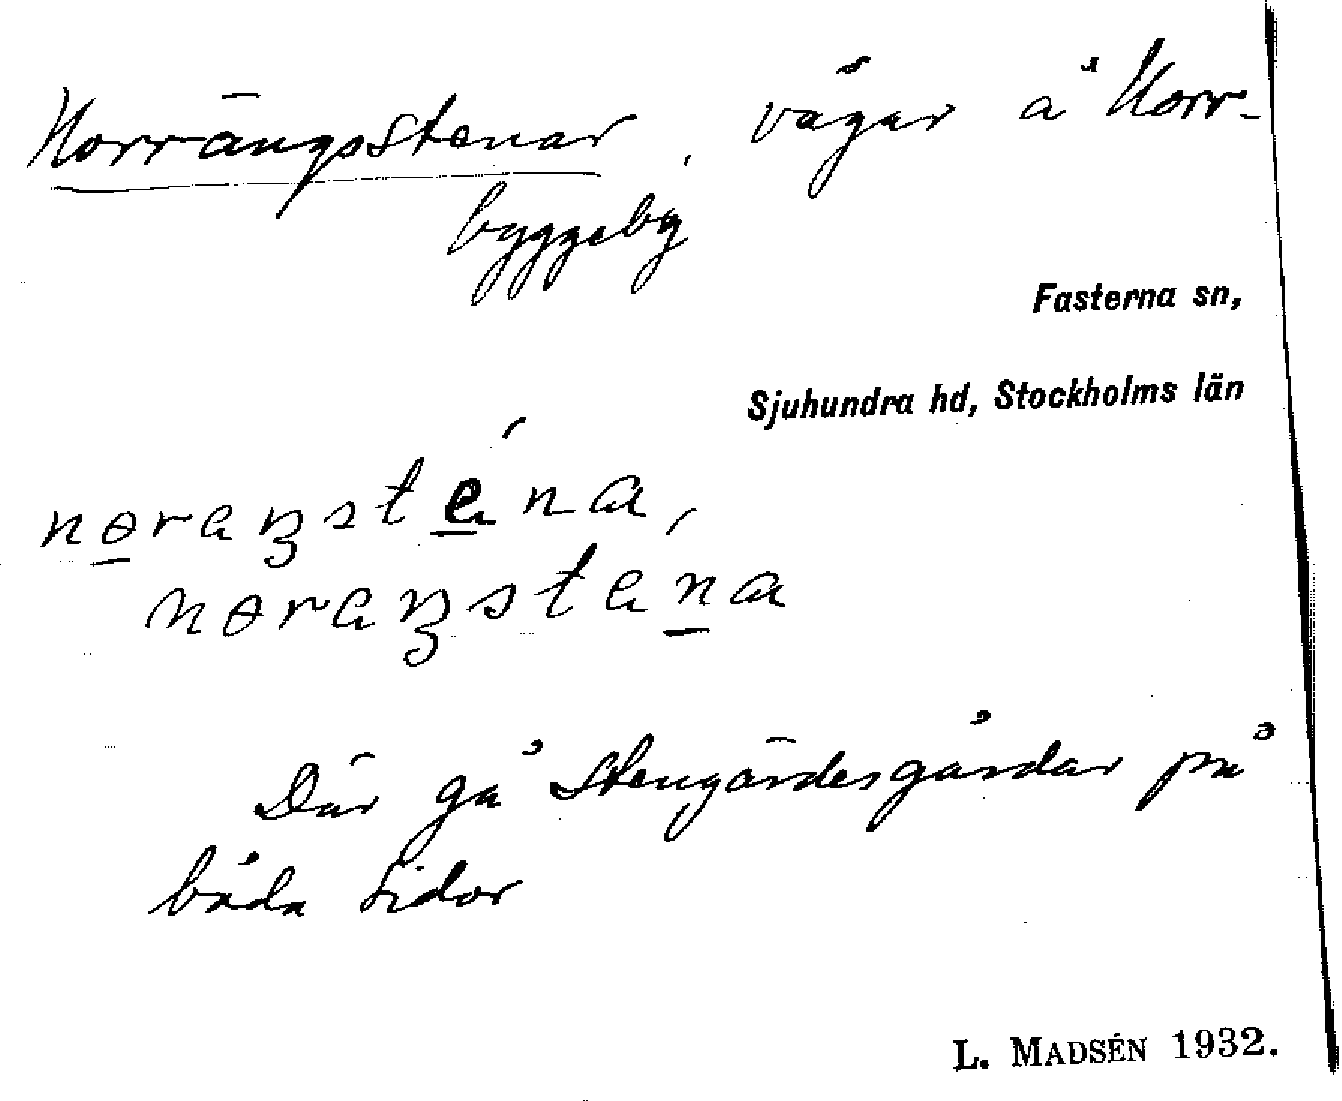 Norrängsstenar, vägar å Norr-
byggeby
Fasterna sn,
Sjuhundra hd, Stockholms län
Där gå stengärdesgårdar på
båda sidor
L. MADSÉN 1932.